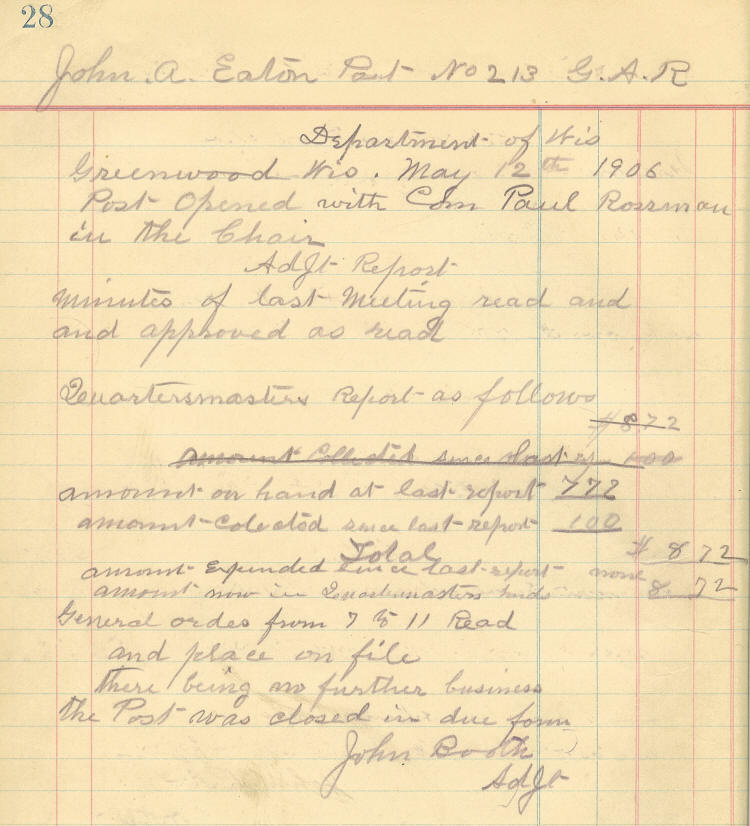 28
John. A. Eaton Post No 213 G. A. R
Department of Wis
Greenwood Wis. May 12th 1906
Post Opened with Com Paul Rossman
in the Chair
AdJt Report
minutes of last Meeting read and
and approved as read
Quartersmasters Report as follows
$ 872
amount Collected since last rep 100
amount on hand at last report 772
amount Colected since last report 100
Total $ 8 72
amount Expended since last report none
amount now in Quartermasters hands 8 72
General ordes from 7 to 11 Read
and place on file
there being no further business
the Post was closed in due form
John Booth
AdJt